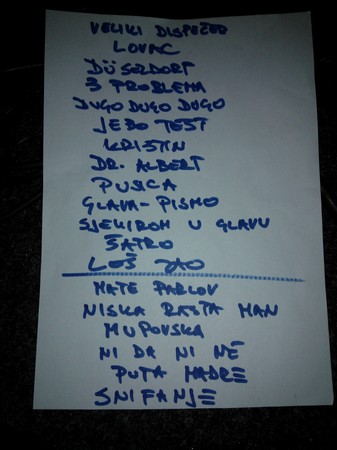 VELIKI DISPEČER
LOVAC
DÜSELDORF
3 PROBLEMA
DUGO DUGO DUGO
JEBO TEST
KRISTIN
DR. ALBERT
PUSICA
GLAVA-PISMO
SJEKIROM U GLAVU
ŠATRO
LOŠ
MATE PARLOV
NISKA RASTA MAN
MUPOVSKA
NI DA NI NE
PUTA MADRE
SNIFANJE